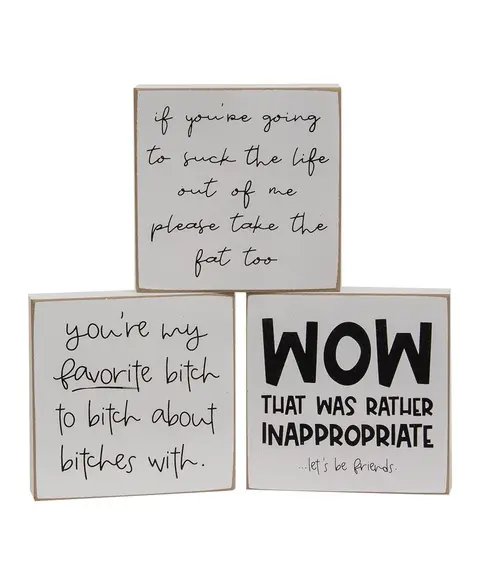 if you're going
to suck the life
out of me
please take the
fat too
you're my
favorite bitch
to bitch about
bitches with.
WOW
THAT WAS RATHER
INAPPROPRIATE
...let's be friends.